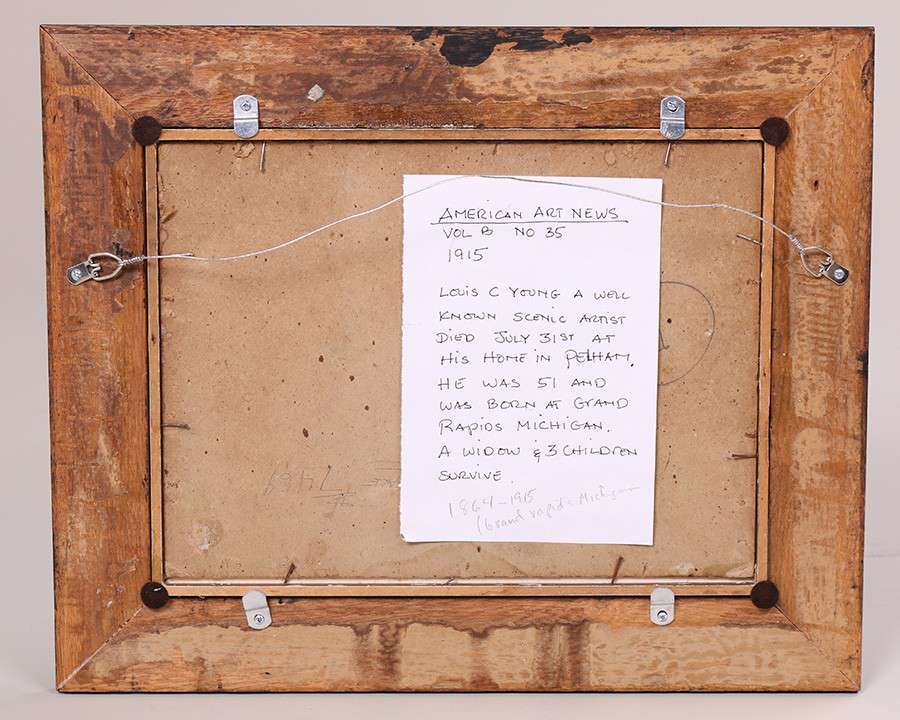 AMERICAN ART NEWS
VOL B NO 35
1915
LOUIS C YOUNG A WELL
KNOWN SCENIC ARTIST
DIED JULY 31ST AT
HIS HOME IN PELHAM.
HE WAS 51 AND
WAS BORN AT GRAND
RAPIDS MICHIGAN.
A WIDOW & 3 CHILDREN
SURVIVE.
1864-1915
(Grand rapids Michigan